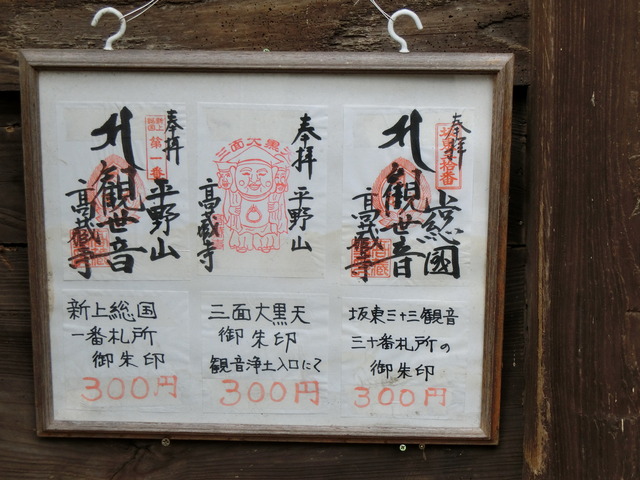 奉拝
新上総国
第一番
平野山
札
観世音
高蔵寺
奉拝
三面大黒天
平野山
高蔵寺
奉拝
坂東三拾番
上総國
札
観世音
高蔵寺
新上総国
一番札所
御朱印
300円
三面大黒天
御朱印
観音浄土入口にて
300円
坂東三十三観音
三十番札所の
御朱印
300円